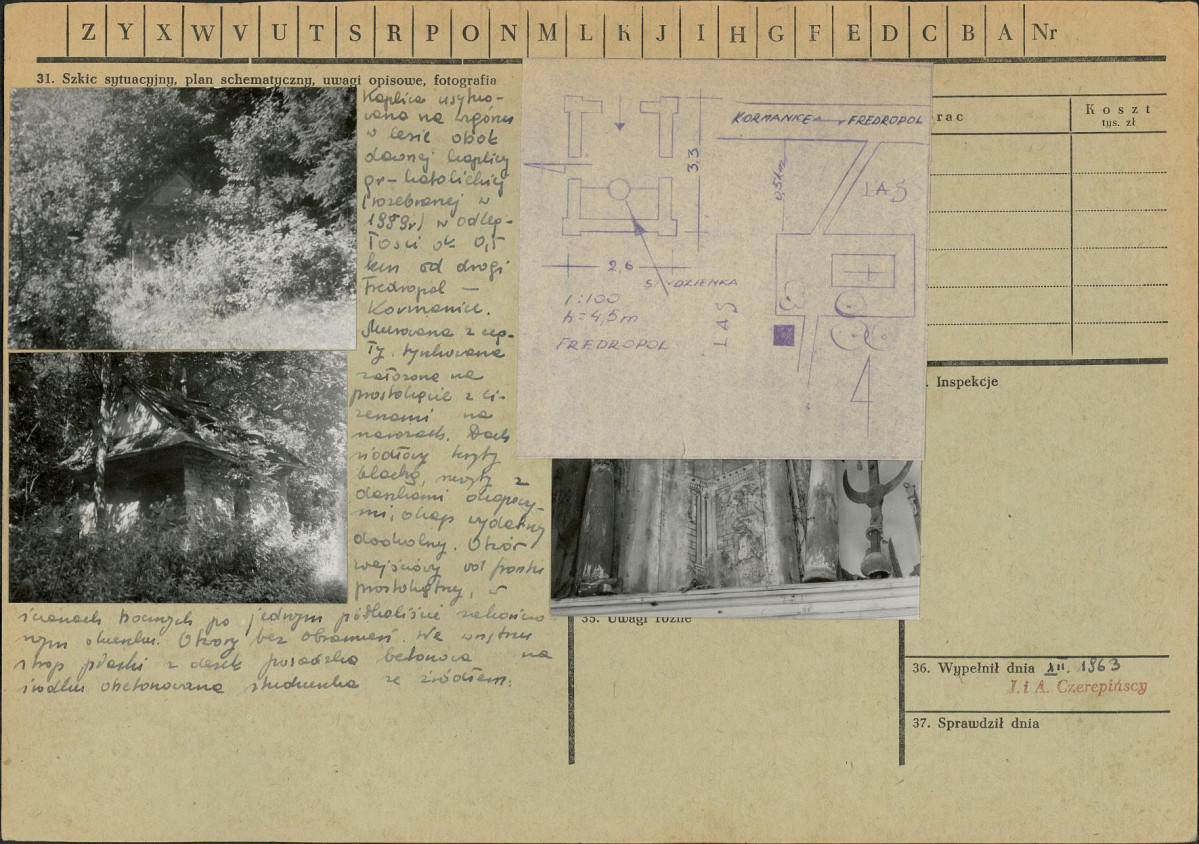 Z Y X W V U T S R P O N M L K J I H G F E D C B A Nr
31. Szkic sytuacyjny, plan schematyczny, uwagi opisowe, fotografia
Kaplica usytuo-
wana na wzgórzu
w lesie obok
dawnej kaplicy
gr-katolickiej
(rozebranej w
w odleg-
łości ok. 0,5
km od drogi
Fredropol —
Kormanice.
Murowana z ceg-
ły, tynkowana
założona na
prostokącie z li-
zenami na
narożach. Dach
siodłowy kryty
blachą, szczyty z
daszkami okapowy-
mi, okap wydatny
dookolny. Otwór
wejściowy od frontu
prostokątny, w
ścianach bocznych po jednym półkoliście zakończo-
nym okienku. Otwory bez obramień. We wnętrzu
strop płaski z desek posadzka betonowa na
środku obetonowana studzienka ze źródłem.
3,3
2,6
STUDZIENKA
1:100
h=4,5m
FREDROPOL
KORMANICE FREDROPOL
LAS
LAS
rac
Koszt
tys. zł
. Inspekcje
35. Uwagi różne
36. Wypełnił dnia XII. 1963
J. i A. Czerepińscy
37. Sprawdził dnia